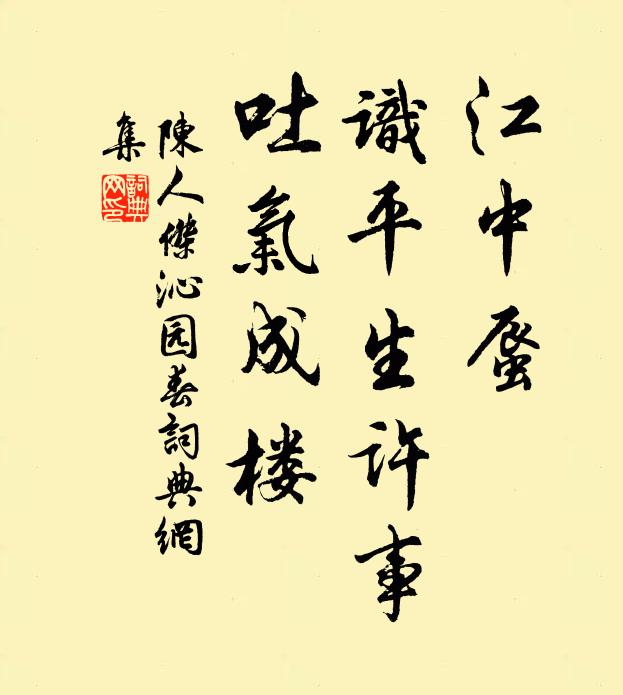 江中蜃
識平生许事
吐氣成楼
陳人傑沁园春詞典網
集
詞典
网印